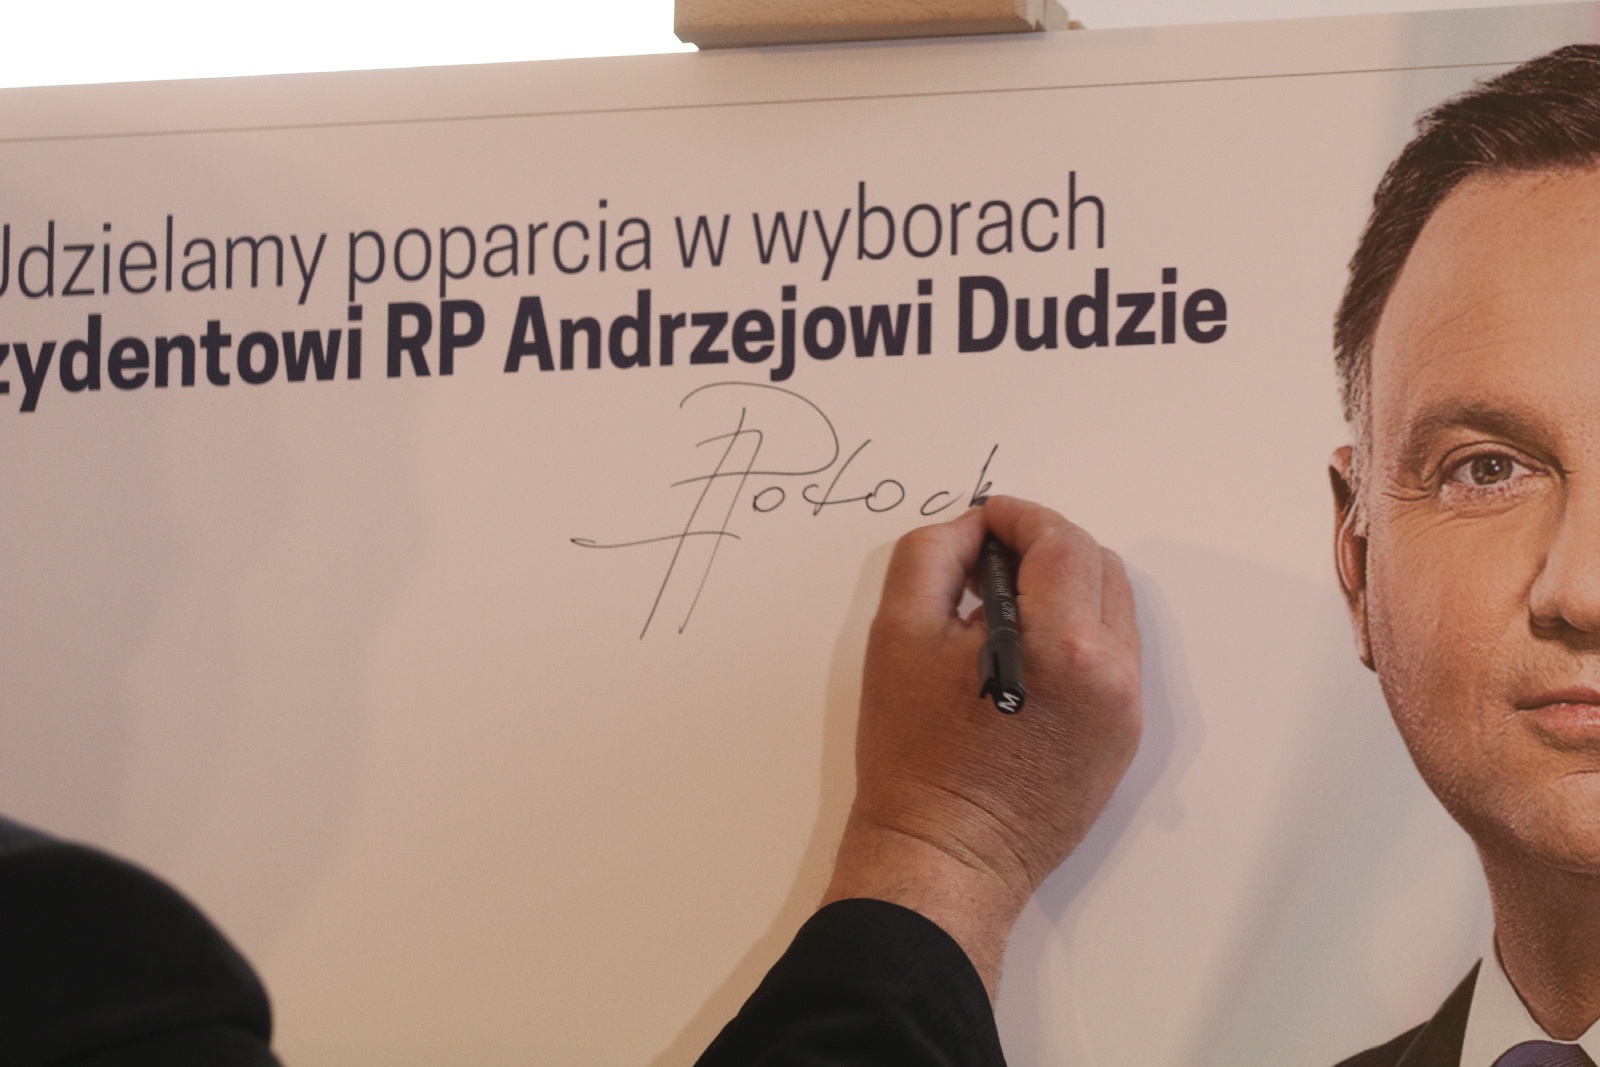 Udzielamy poparcia w wyborach
zydentowi RP Andrzejowi Dudzie
Potock
M